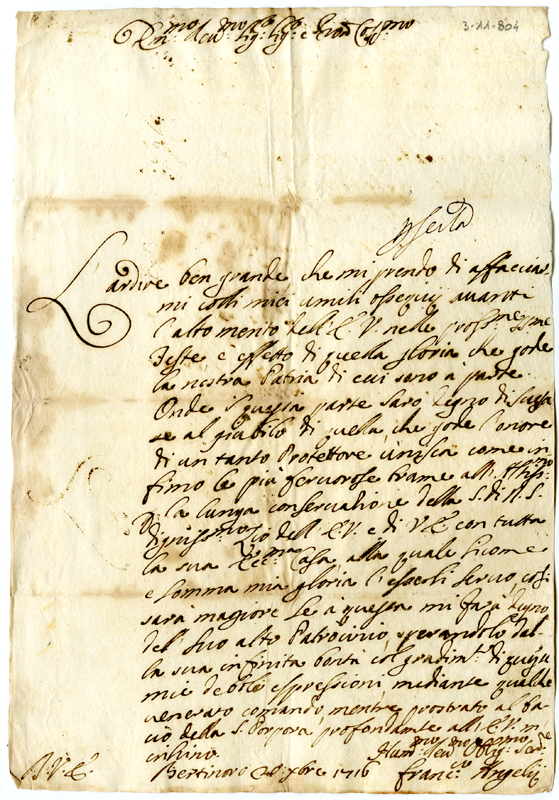 3-11-804
Em.mo
L'ardire ben grande che mi prendo di affacciar
mi colli miei umili ossequij avanti
l'alto merito dell'E.V. nelle pross.me SS.me
Feste è effetto di quella gloria che gode
la nostra Patria di cui sono à parte.
Onde questa parte sarò degno di
al giubilo di quella, che gode l'onore
di un tanto Protettore, unisca come in
fimo le più fervorose brame all'
la lunga conservatione della S. di N.S.
Zio dell'E.V. e di V.E. con tutta
la sua Ecc.ma Casa, alla quale sicome
è somma mia gloria l'esserli servo, cosi
sarà magiore se à questa mi farà degno
del suo alto Patrocinio, sperandolo dal-
la sua infinita bontà col gradim.to di queste
mie debole espressioni, mediante qualche
venerato comando, mentre prostrato al ba
cio della S. Porpora profondamte all'E.V. m'
inchino.
B.V.E. Bertinoro 20 Xbre 1716
Franc.co Angelij